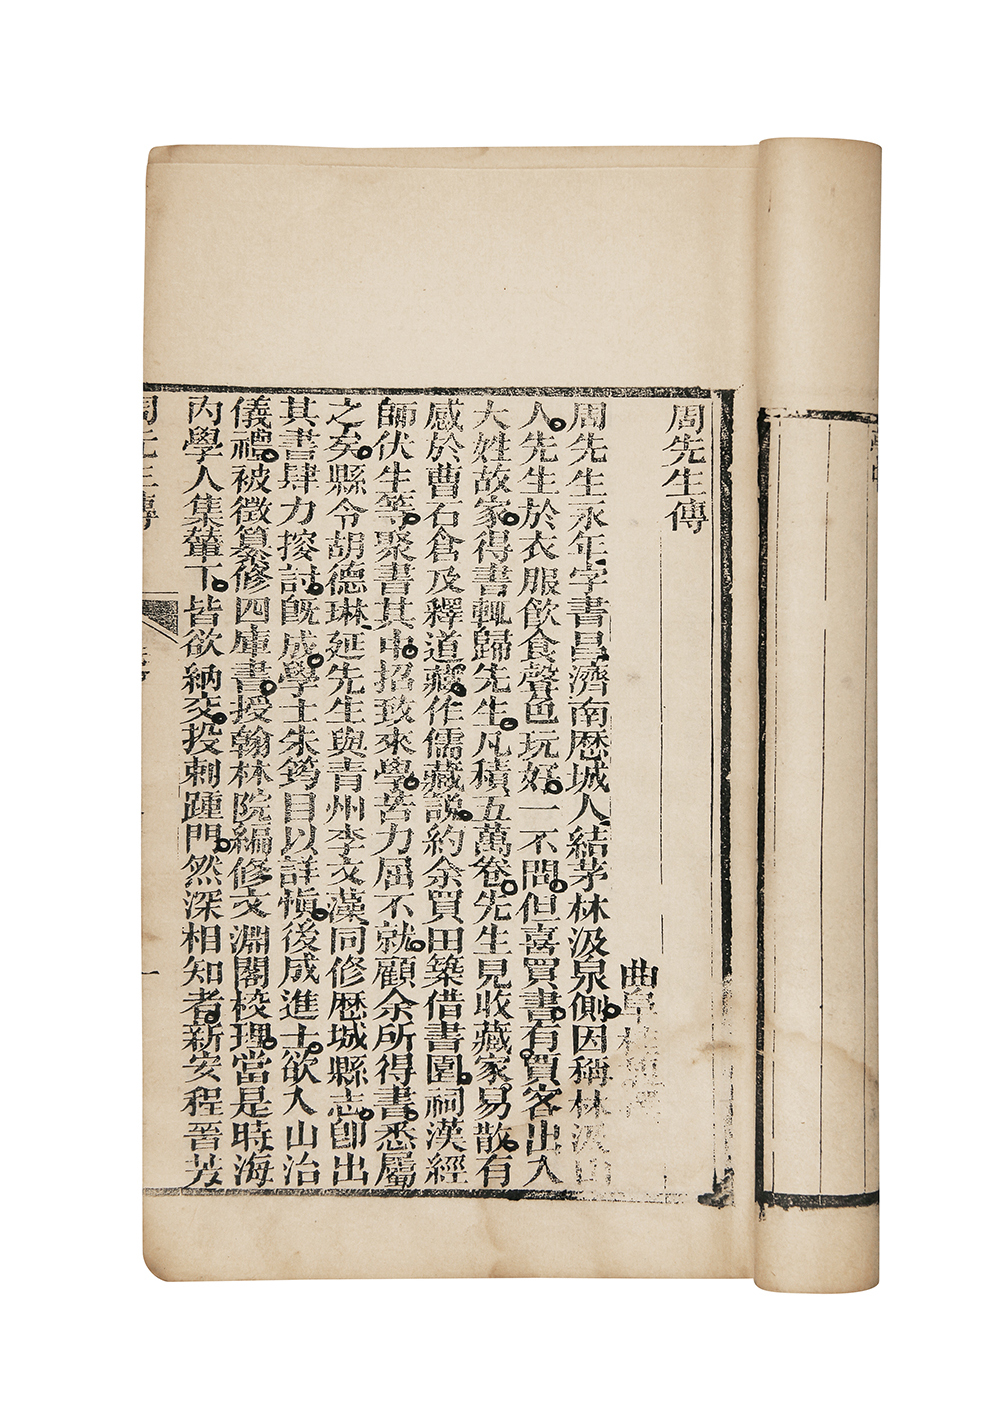 周先生傳
曲阜桂馥
周先生永年字書昌濟南歷城人結茅林汲泉側因稱林汲山
人先生於衣服飮食聲色玩好一不問但喜買書有賈客出入
大姓故家得書輒歸先生凡積五萬卷先生見收藏家易散有
感於曹石倉及釋道藏作儒藏說約余買田築借書園祠漢經
師伏生等聚書其中招致來學苦力屈不就顧余所得書悉屬
之矣縣令胡德琳延先生與青州李文藻同修歷城縣志卽出
其書肆力搜討旣成學士朱筠目以詳愼後成進士欲入山治
儀禮被徵纂修四庫書授翰林院編修文淵閣校理當是時海
內學人集輦下皆欲納交投刺踵門然深相知者新安程晉芳
周先生傳
一